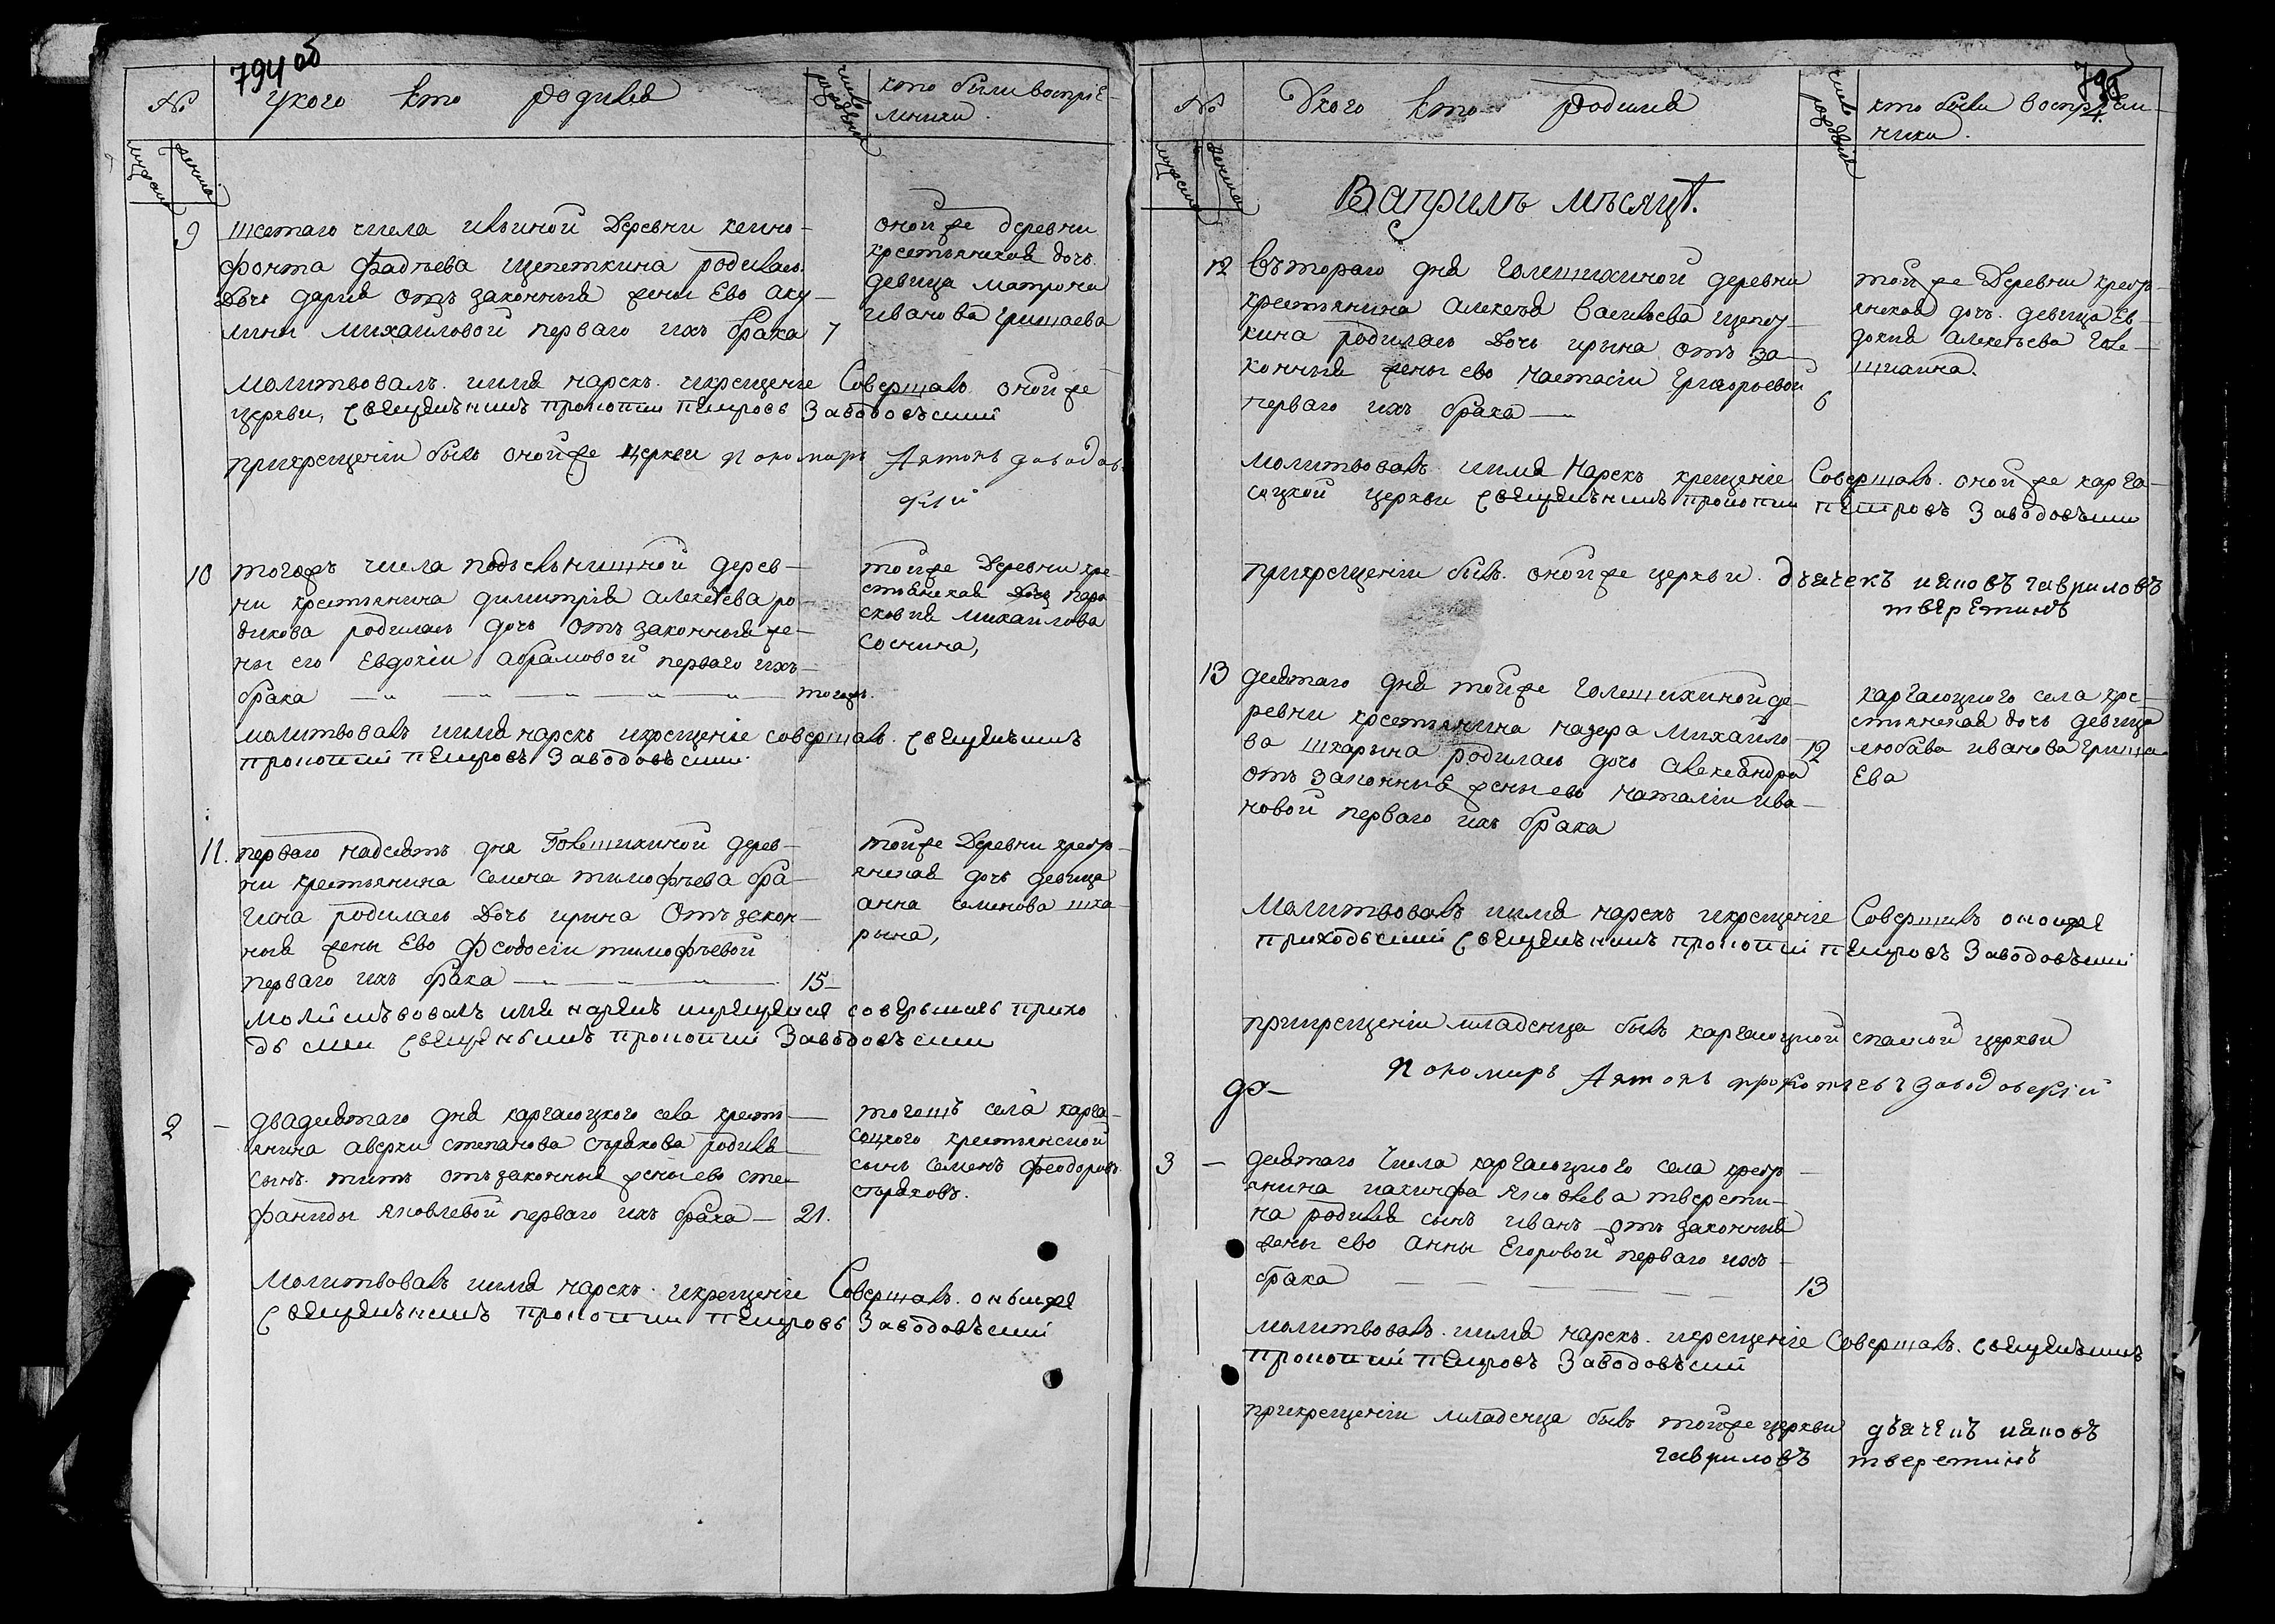 794 об
№ У кого кто родился число рождения кто были воспрiе-
мники.
мужеска женска
9 шестаго числа ильиной деревни ксено-
фонта фадѣева щепеткина родилась
дочь дария отъ законныя жены ево аку-
лины михаиловой перваго ихъ брака 7
оной же деревни
крестьянская дочь
девица матрона
иванова гришаева
молитвовалъ имя нарекъ и крещенiе совершалъ оной же
церкви, священникъ прокопии петровъ Заводовъскии
при крещенiи былъ оной же церкви пономарь Антонъ заводов-
скiй
10 тогожъ числа подъельнишной дерев-
ни крестьянина димитрiя алексѣева ро-
дикова родилась дочь отъ законныя же-
ны его евдокiи абрамовой перваго ихъ
брака тогожъ.
той же деревни кре-
стьянская дочь пара
сковия михаилова
соснина,
молитвовалъ имя нарекъ и крещенiе совершалъ священъникъ
прокопии петровъ Заводовъскии
11. перваго надесять дня Голещихиной дерев-
ни крестьянина семена тимофѣева бра-
гина родилась дочь ирына отъ закон-
ныя жены ево феодосiи тимофѣевой
перваго ихъ брака 15
той же деревни крестья-
янская дочь девица
анна семенова шка-
рина,
молитъвовалъ имя нарекъ и крещения совершилъ прихо
дъскии священникъ прокопии Заводовъскии
2 двадесятаго дня каргасоцкого села кресть-
янина аверки степанова стърякова родился
сынъ титъ отъ законныя жены ево сте-
фаниды яковлевой перваго ихъ брака 21.
тогошъ села карга-
соцкого крестьянской
сынъ семенъ феодоровъ
стряковъ.
молитвовалъ имя нарекъ и крещенiе совершалъ оныяже
священникъ прокопии петровъ Заводовъскии
795
№ У кого кто родился число рождения кто были воспрiем-
ники.
мужеска женска
В априлѣ мѣсяцѣ.
12 въторого дня Голещихиной деревни
крестьянина алексѣя васильева щепет-
кина родилась дочь ирына отъ за-
конныя жены ево настасiи григорьевой
перваго ихъ брака 6
той же деревни кресть-
янская дочь девица ев-
докия алексѣева голе-
щихина.
молитвовалъ имя нарекъ крещенiе совершалъ оной же карга-
соцкой церкви священъникъ прокопии петровъ Заводовъскии
при крещенiи былъ оной же церкви дъячекъ иаковъ гавриловъ
тверетинъ
13 девятаго дня той же голещихиной де-
ревни крестьянина назара михаило-
ва шкарина родилась дочь александра 12
отъ законныя жены ево наталiи ива-
новой перваго ихъ брака
каргасоцкого села кре-
стьянская дочь девица
любава иванова гриша
ева
молитвовалъ имя нарекъ и крещенiе совершилъ онояже
приходъскии священъникъ прокопии петровъ Заводовъскии
при крещенiи младенца былъ каргасоцкой спаской церкви
пономарь Антонъ прокопьевъ заводовскiй
3 девятаго числа каргасоцкого села кресть-
янина иакинфа яковлева твeрети-
на родился сынъ иванъ отъ законныя
жены ево анны егоровой перваго ихъ
брака 13
молитвовалъ имя нарекъ и крещенiе совершалъ священъникъ
прокопии петровъ Заводовъскии
при крещенiи младенца былъ той же церкви дъячекъ иаковъ
гавриловъ тверетинъ